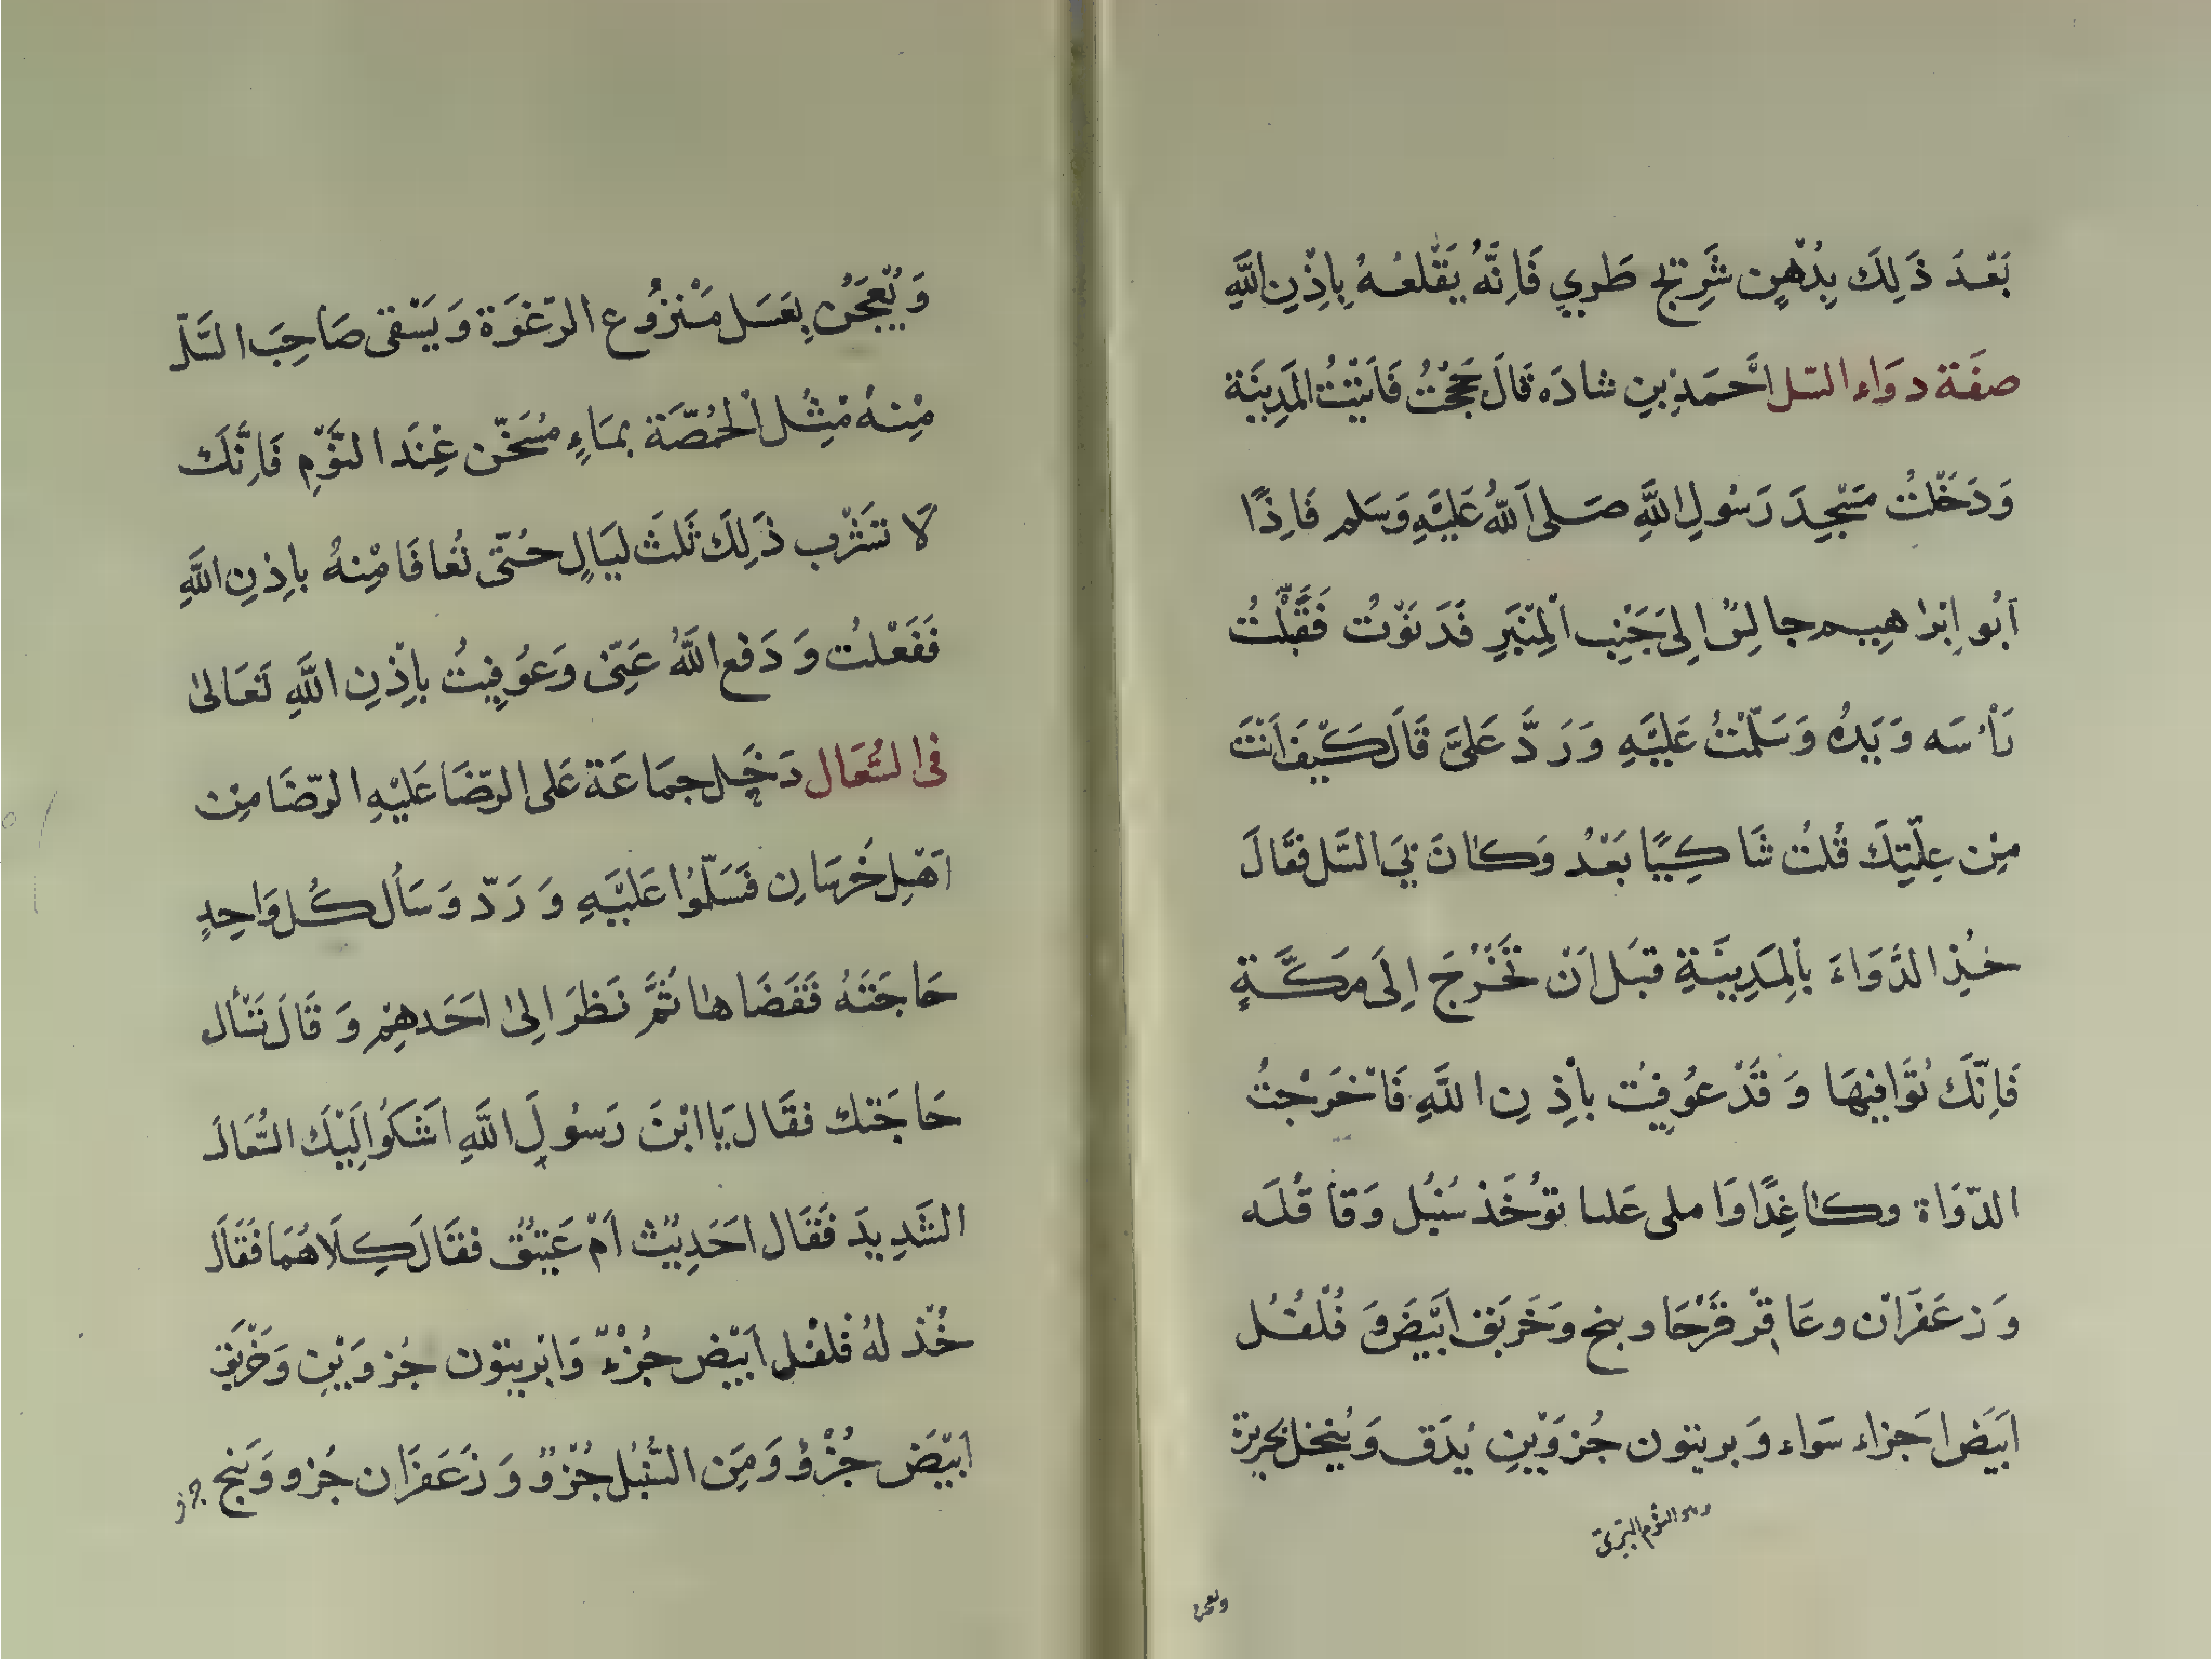 بَعْدَ ذَلِكَ بِدُهْنِ شَرِيَج طَرِيٍ فَاِنَّهُ يَقْلعُهُ بِاِذْنِ اللَّهِ
صفَة دوَاء السل اَحمَدِ بنِ شادَه قَالَ حَجَجْتُ فَاَتَيْتُ المَدِينَة
وَدَخَلْتُ مَسْجِدَ رَسُولِ اللَّهِ صَلى اَللّٰهُ عَلَيْهِ وَسَلم فَاِذًا
اَبُو اِبْرَاهِيم جالِسٌ اِلىَ جَنْبِ اَلمِنْبَرِ فَدَنَوْتُ فَقَبَّلْتُ
رَأسَه وَيَدُه وَسَلَّمْتُ عَلَيْهِ وَرَدَّ عَلىَّ قَالَ كَيْفَ اَنْتَ
مِن عِلّتِكَ قُلتُ شَاكِيًا بَعْدُ وَكَانَ بيَ السَّل فقَالَ
خُذِ الدَّوَاءَ بالمَدِينَةِ قبَل اَنْ تَخْرُجَ اِلَى مَكَّةٍ
فَاِنّكَ تُوَافِيهَا وَقَدْ عُوفِيْت باْذِنِ اللَّهِ فَاَخْرَجْتُ
الدّوَاة وكَاغِدًا وَاملى عَلىنا تؤُخَذ سُنْبُل وَقاَ قُلَه
وَزعَفَرَان وعَاقِرْ قَرْحَا وبنج وَخَربَق اَبيَضَ وَ فُلْفُل
اَبيَضَ اجَزاء سَواء وَبربيَون جُزوَيْنِ يُدَق وَيُنخل بحَريرَة
وىعجن
وَيُعجَنُ بِعَسَل مَنْزُوع الرّغوَة وَيَسْقى صَاحِبَ السَّلّ
مِنهُ مِثِل اْلحُمصَّة بمَاءٍ مُسَخّن عِنَدَ النَّوْمِ فَاِنَّكَ
لَا تَشْرْب ذَلِكَ ثَلثَ ليَالٍ حتّى تُعافَا مِنهُ باِذنِ اللَّهِ
فَفَعْلتُ وَدَفع اللَّهُ عَنّى وَعُوفِيتُ باِذِنِ اللَّهِ تَعَالىٰ
فى السُّعَال دَخَل جمَاعَة عَلى الرّضَا عَليْهِ الرّضَا مِن
اَهْلِ خُرَسَانِ فَسَلّمُوا عَليْهِ وَرَدّ وَسَأل كُل وَاحِدٍ
حَاجَتَهُ فَقَضَاها ثُمَّ نَظرَ اِلىٰ اَحَدهِمْ وَقَالَ تَسْأل
حَاجَتك فقَال يَا ابْنَ رَسُولَ اللَّهِ اَشكَوُا اِلَيْكَ السُّعَالَ
الشَدِيدَ فَقَال احَدِيْث اَمْ عَتيْقٌ فقَالَ كِلَاهُمَا فَقَالَ
خُذْ لهُ فُلفُل اَبيَض جُزْءٌ وَابربيَون جُزوَيْنِ وَخَرْبَق
اَبيَض جُزْؤ وَمِنَ السُّنْبُل جُزْوٌ وَزعَفرَان جُزو وَبَنج جزو